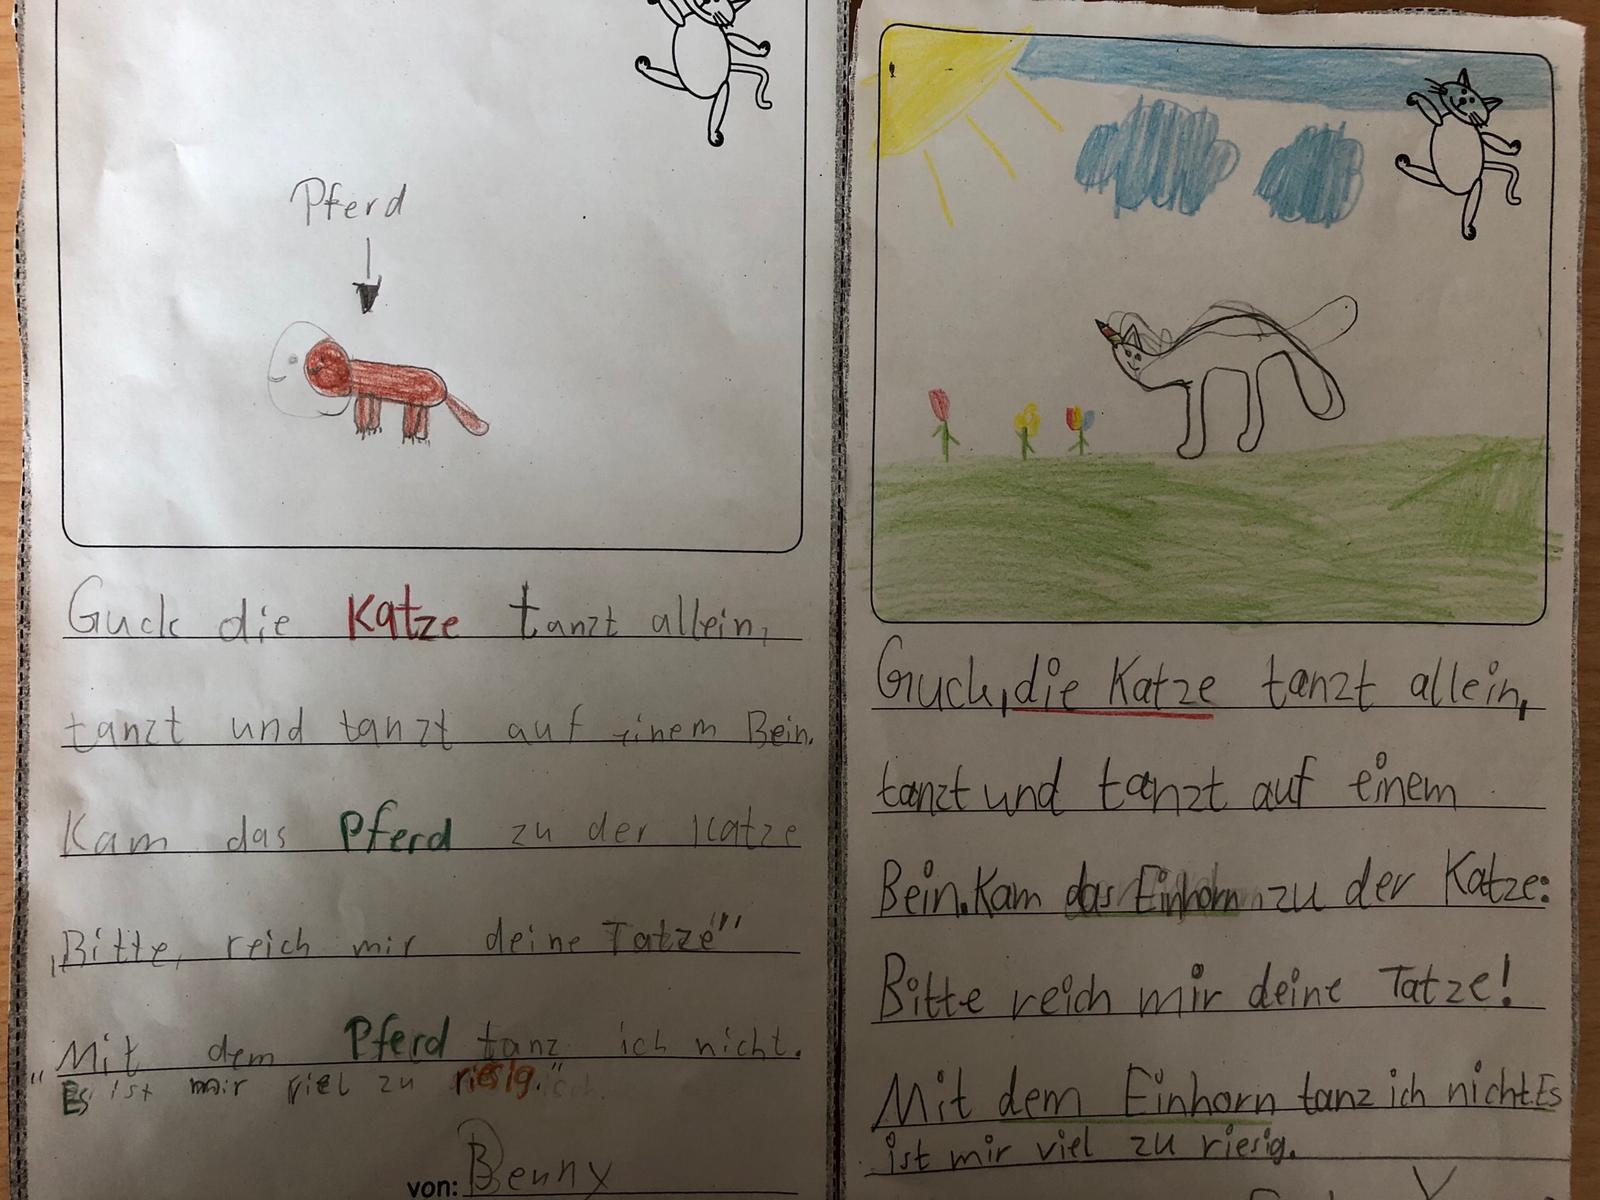 Pferd
Guck die Katze tanzt allein,
tanzt und tanzt auf einem Bein.
Kam das Pferd zu der Katze
„Bitte, reich mir deine Tatze"
"Mit dem Pferd tanz ich nicht.
Es ist mir viel zu riesig."
von: Benny
Guck, die Katze tanzt allein,
tanzt und tanzt auf einem
Bein. Kam das Einhorn zu der Katze:
Bitte reich mir deine Tatze!
Mit dem Einhorn tanz ich nicht. Es
ist mir viel zu riesig.